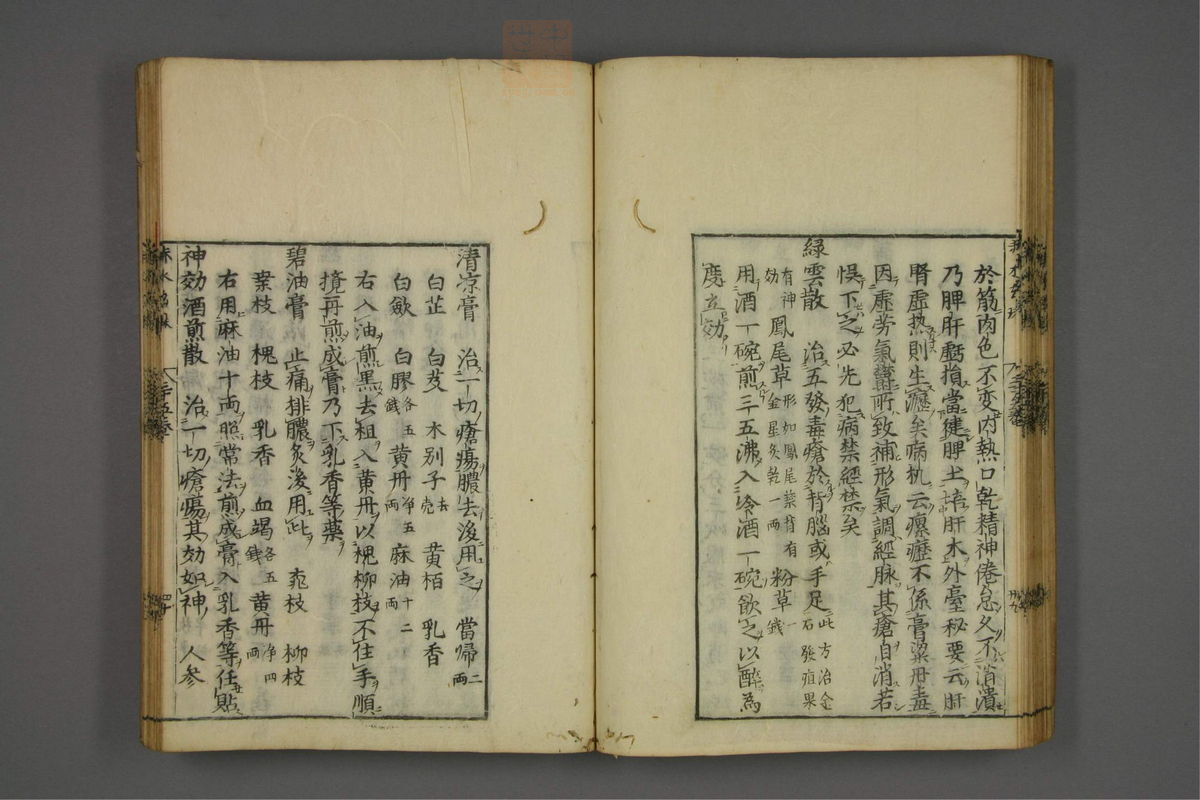 於筋肉色不變内熱口乾精神倦怠久不消潰
乃脾肝虧損當健脾土培肝木外臺秘要云肝
腎虚热則生癧矣病机云瘰癧不係膏粱丹毒
因虚劳氣鬱所致補形氣調經脉其瘡自消若
悮下之必先犯病禁經禁矣
緑雲散 治五發毒瘡於背腦或手足此方治金石發疽果
有神効鳳尾草形如鳳尾葉背有金星炙乾一兩粉草一錢
用酒一碗煎三五沸入冷酒一碗飲之以醉為
度立効
清凉膏 治一切瘡瘍膿去後用之 當帰二两
白芷 白芨 木别子去壳 黄栢 乳香
白歛 白膠各五錢 黄丹净五两 麻油十二两
右入油煎黒去柤入黄丹以槐柳枝不住手順
攪再煎成膏乃下乳香等藥
碧油膏 止痛排膿灸後用此 桃枝 柳枝
桑枝 槐枝 乳香 血竭各五錢 黄丹净四两
右用麻油十两照常法煎成膏入乳香等任貼
神効酒煎散 治一切瘡瘍其効如神 人参
赤水玄珠